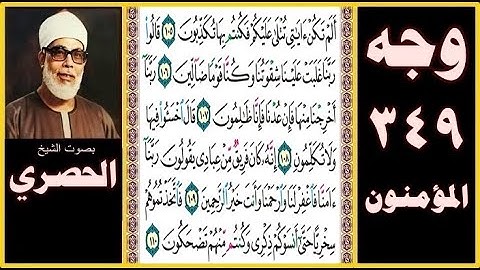 وجه
٣٤٩
المؤمنون
أَلَمْ تَكُنْ ءَايَٰتِى تُتْلَىٰ عَلَيْكُمْ فَكُنتُم بِهَا تُكَذِّبُونَ ١٠٥ قَالُوا۟
رَبَّنَا غَلَبَتْ عَلَيْنَا شِقْوَتُنَا وَكُنَّا قَوْمًا ضَآلِّينَ ١٠٦ رَبَّنَآ
أَخْرِجْنَا مِنْهَا فَإِنْ عُدْنَا فَإِنَّا ظَٰلِمُونَ ١٠٧ قَالَ ٱخْسَـُٔوا۟ فِيهَا
وَلَا تُكَلِّمُونِ ١٠٨ إِنَّهُۥ كَانَ فَرِيقٌ مِّنْ عِبَادِى يَقُولُونَ رَبَّنَآ
ءَامَنَّا فَٱغْفِرْ لَنَا وَٱرْحَمْنَا وَأَنتَ خَيْرُ ٱلرَّٰحِمِينَ ١٠٩ فَٱتَّخَذْتُمُوهُمْ
سِخْرِيًّا حَتَّىٰٓ أَنسَوْكُمْ ذِكْرِى وَكُنتُم مِّنْهُمْ تَضْحَكُونَ ١١٠
بصوت الشيخ
الحصري